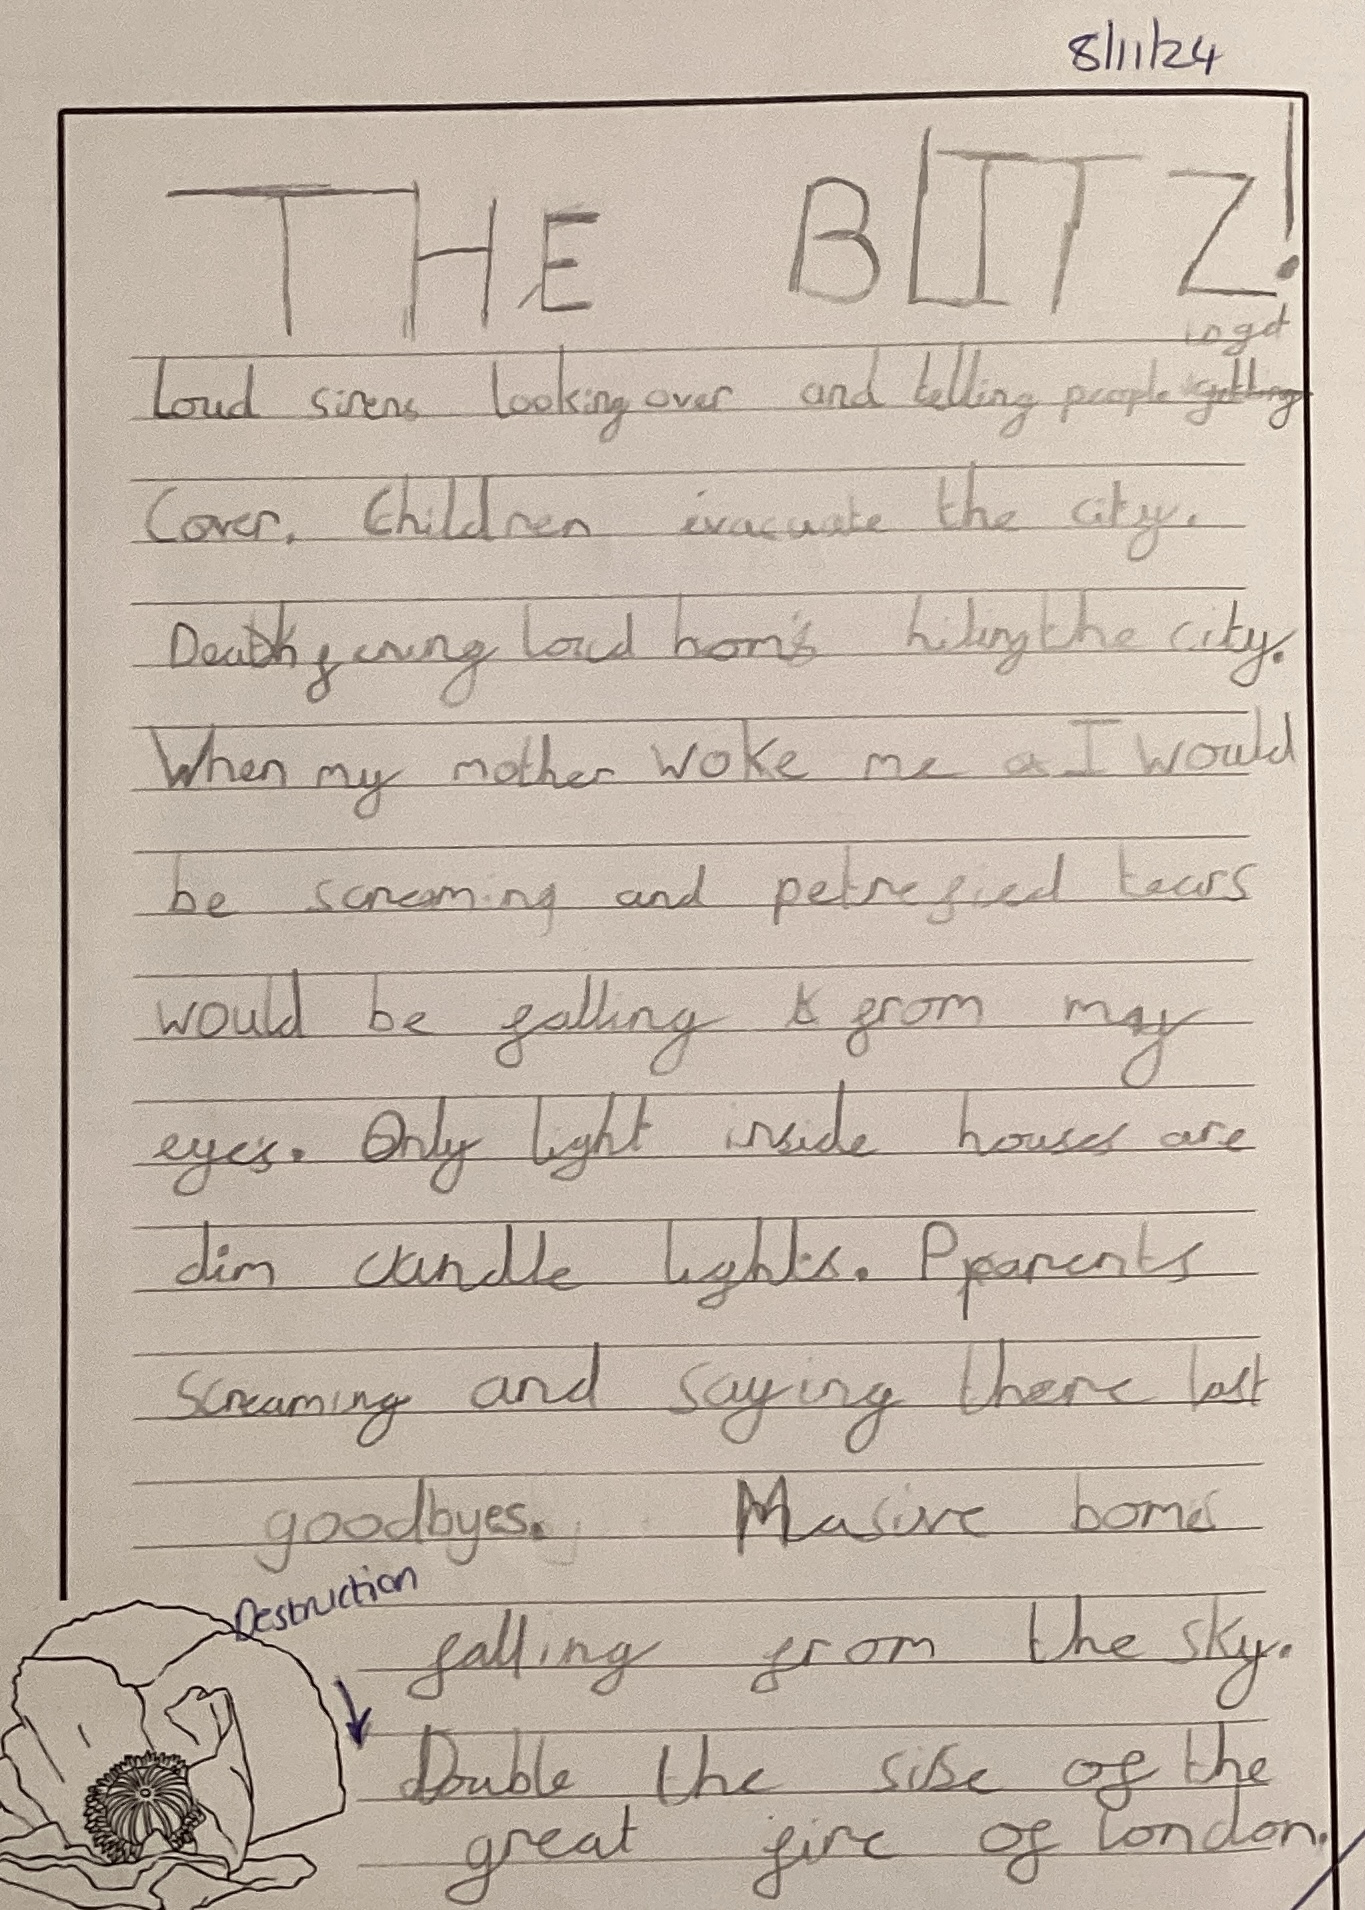 8/11/24
THE BLITZ!
in get
Loud sirens looking over and telling people
Cover. Children evacuate the city.
Deathfening loud bom's hiting the city.
When my mother woke me a I would
be screaming and petrefied tears
would be falling from may
eyes. Only light inside houses are
dim candle lights. Pparents
screaming and saying there last
goodbyes. Masive boms
Destruction
falling from the sky.
Double the sise of the
great fire of london.